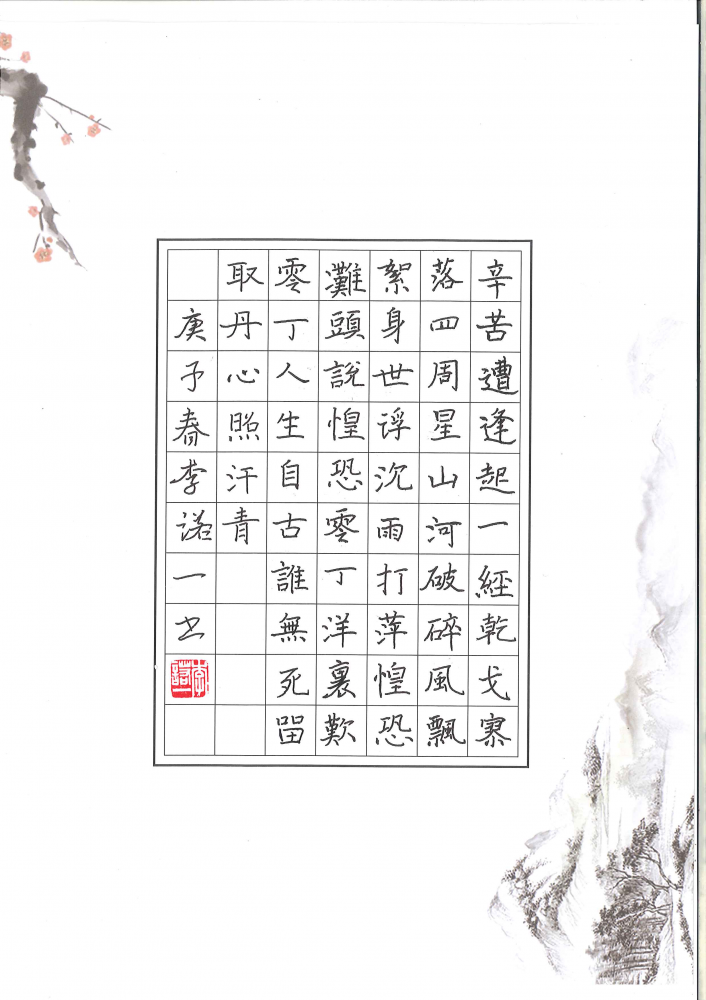 辛苦遭逢起一經乾戈寥
落四周星山河破碎風飄
絮身世浮沉雨打萍惶恐
灘頭說惶恐零丁洋裏歎
零丁人生自古誰無死留
取丹心照汗青
庚子春李諾一书
李諾一